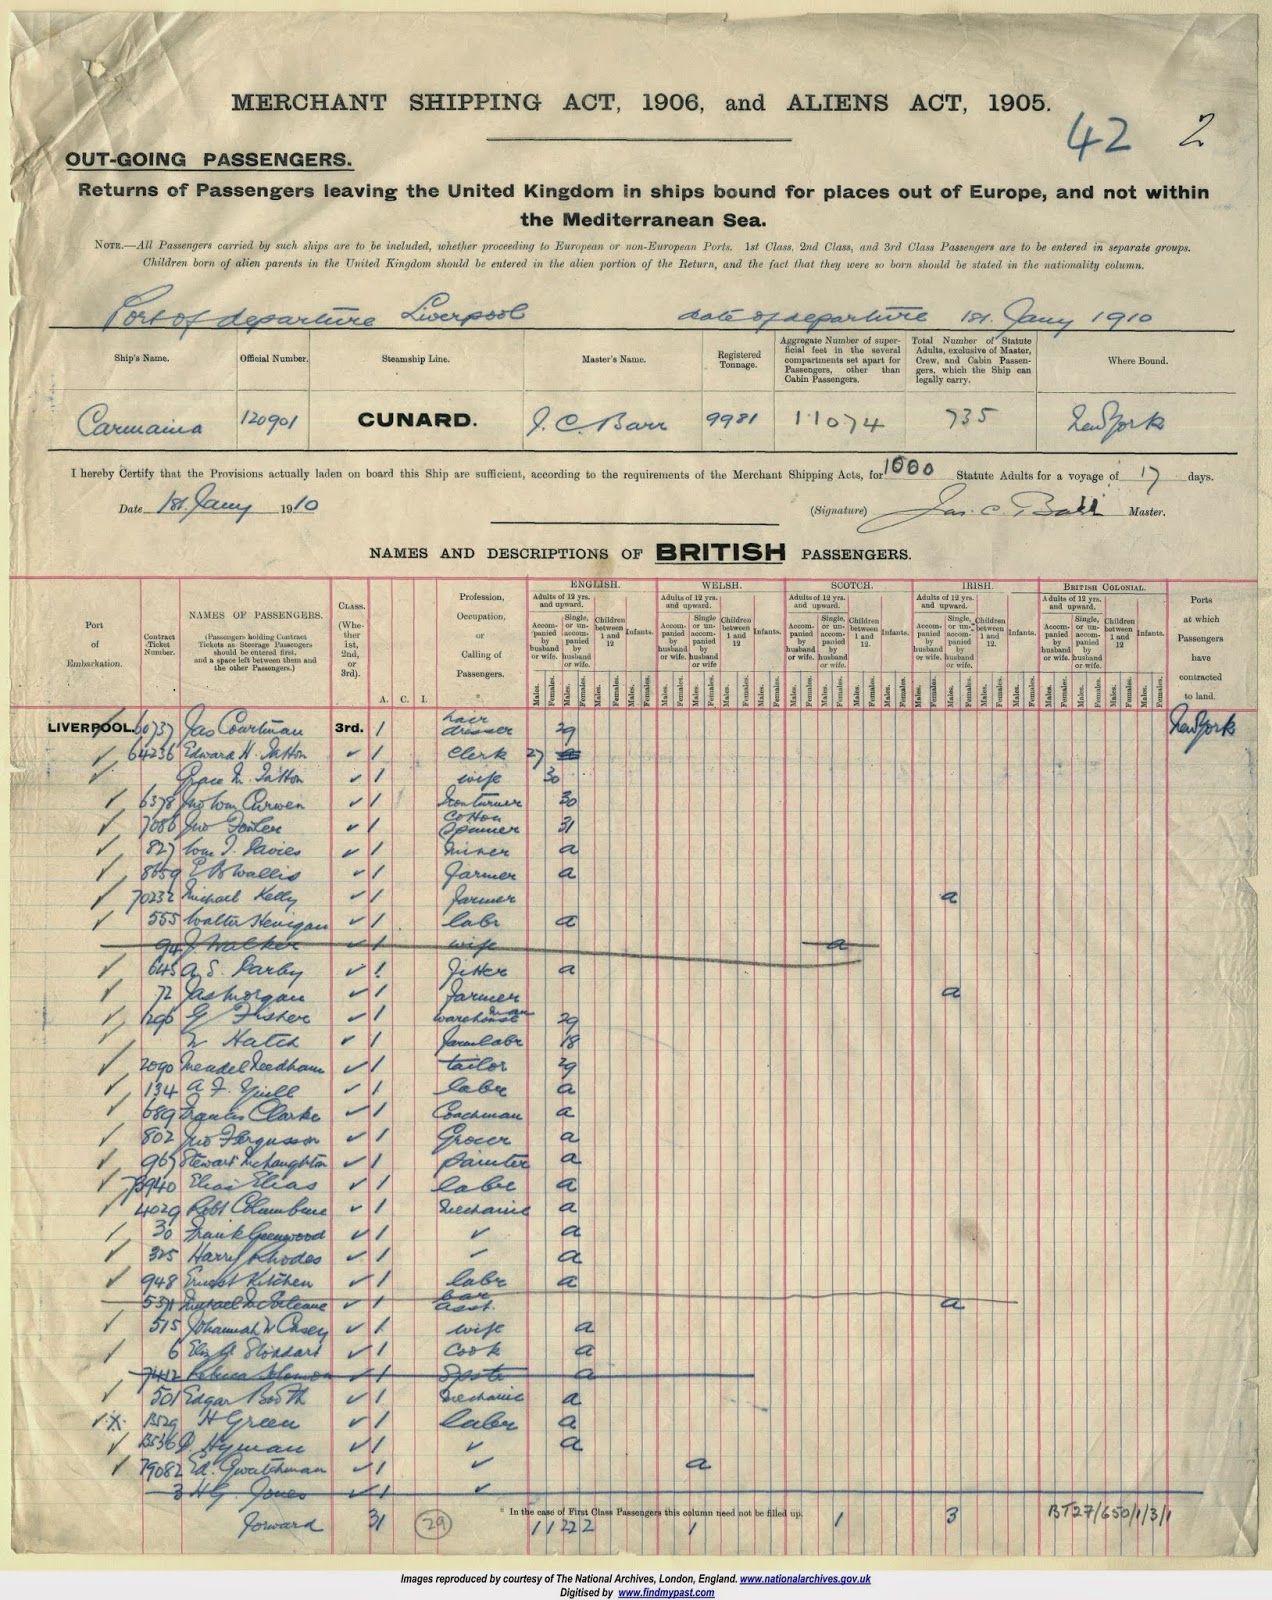 MERCHANT SHIPPING ACT, 1906, and ALIENS ACT, 1905.
42 2
OUT-GOING PASSENGERS.
Returns of Passengers leaving the United Kingdom in ships bound for places out of Europe, and not within
the Mediterranean Sea.
NOTE.—All Passengers carried by such ships are to be included, whether proceeding to European or non-European Ports. 1st Class, 2nd Class, and 3rd Class Passengers are to be entered in separate groups.
Children born of alien parents in the United Kingdom should be entered in the alien portion of the Return, and the fact that they were so born should be stated in the nationality column.
Port of departure Liverpool date of departure 1st. Jany 1910
Ship's Name. Official Number. Steamship Line. Master's Name. Registered Tonnage. Aggregate Number of superficial feet in the several compartments set apart for Passengers, other than Cabin Passengers. Total Number of Statute Adults, exclusive of Master, Crew, and Cabin Passengers, which the Ship can legally carry. Where Bound.
120901 CUNARD. J. C. Barr 9981 11074 735 New York
I hereby Certify that the Provisions actually laden on board this Ship are sufficient, according to the requirements of the Merchant Shipping Acts, for 1000 Statute Adults for a voyage of 17 days.
Date 1st. Jany 1910 (Signature) Jas. C. Barr Master.
NAMES AND DESCRIPTIONS OF BRITISH PASSENGERS.
ENGLISH. WELSH. SCOTCH. IRISH. BRITISH COLONIAL.
Port of Embarkation. Contract Ticket Number. NAMES OF PASSENGERS. (Passengers holding Contract Tickets as Steerage Passengers should be entered first, and a space left between them and the other Passengers.) CLASS. (Whether 1st, 2nd, or 3rd). A. C. I. Profession, Occupation, or Calling of Passengers. * Ports at which Passengers have contracted to land.
Adults of 12 yrs. and upward. Adults of 12 yrs. and upward. Adults of 12 yrs. and upward. Adults of 12 yrs. and upward. Adults of 12 yrs. and upward.
Accompanied by husband or wife. Single, or unaccompanied by husband or wife. Children between 1 and 12 Infants.
Males. Females. Males. Females. Males. Females. Males. Females.
LIVERPOOL. 60737 Jas Courtman 3rd. 1 hair dresser 29 New York
64236 Edward H. Tatton 1 Clerk 27
Grace M. Tatton 1 wife 30
6378 Jno Wm Curwen 1 Ironturner 30
7086 Jno Fowler 1 Cotton Spinner 31
827 Wm J. Davies 1 Miner a
8659 Wallis 1 farmer a
70232 Michael Kelly 1 farmer a
555 Walter 1 labr a
94 J Walker 1 wife a
645 A. S. Darby 1 fitter a
72 Jas Morgan 1 farmer a
1290 G Fisher 1 warehouseman 29
W Hatch 1 farm labr 18
2090 Mendel Needham 1 tailor 29
134 A. F. 1 labr a
689 Francis Clarke 1 Coachman a
802 Jno Fergusson 1 Grocer a
967 Stewart McNaughton 1 painter a
Elias Elias 1 labr a
4029 Robt 1 mechanic a
30 Frank Greenwood 1 a
325 Harry Rhodes 1 a
948 Ernest Kitchen 1 labr a
5371 1 bar asst. a
515 Johannah W Casey 1 wife a
6 Eliz A Stoddart 1 Cook a
7412 Rebecca Solomon 1 a
501 Edgar Booth 1 mechanic a
B529 H Green 1 labr a
B536 Hyman 1 a
79082 Ed. 1 a
3 H G. Jones 1
* In the case of First Class Passengers this column need not be filled up.
Forward 31 29 1 1 22 2 1 1 3 BT27/650/1/3/1
Images reproduced by courtesy of The National Archives, London, England. www.nationalarchives.gov.uk
Digitised by www.findmypast.com